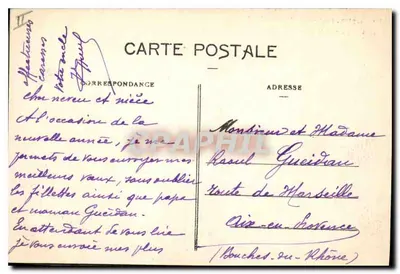 II
CARTE POSTALE
CORRESPONDANCE
ADRESSE
cher neveu et nièce
A l'occasion de la
nouvelle année, je me
permets de vous envoyer mes
meilleurs vœux, sans oublier
les fillettes ainsi que papa
et maman Gueidan.
En attendant de vous lire
je vous envoie mes plus
affectueuses
caresses
Votre oncle
Monsieur et Madame
Raoul Gueidan
route de Marseille
Aix-en-Provence
(Bouches-du-Rhône)